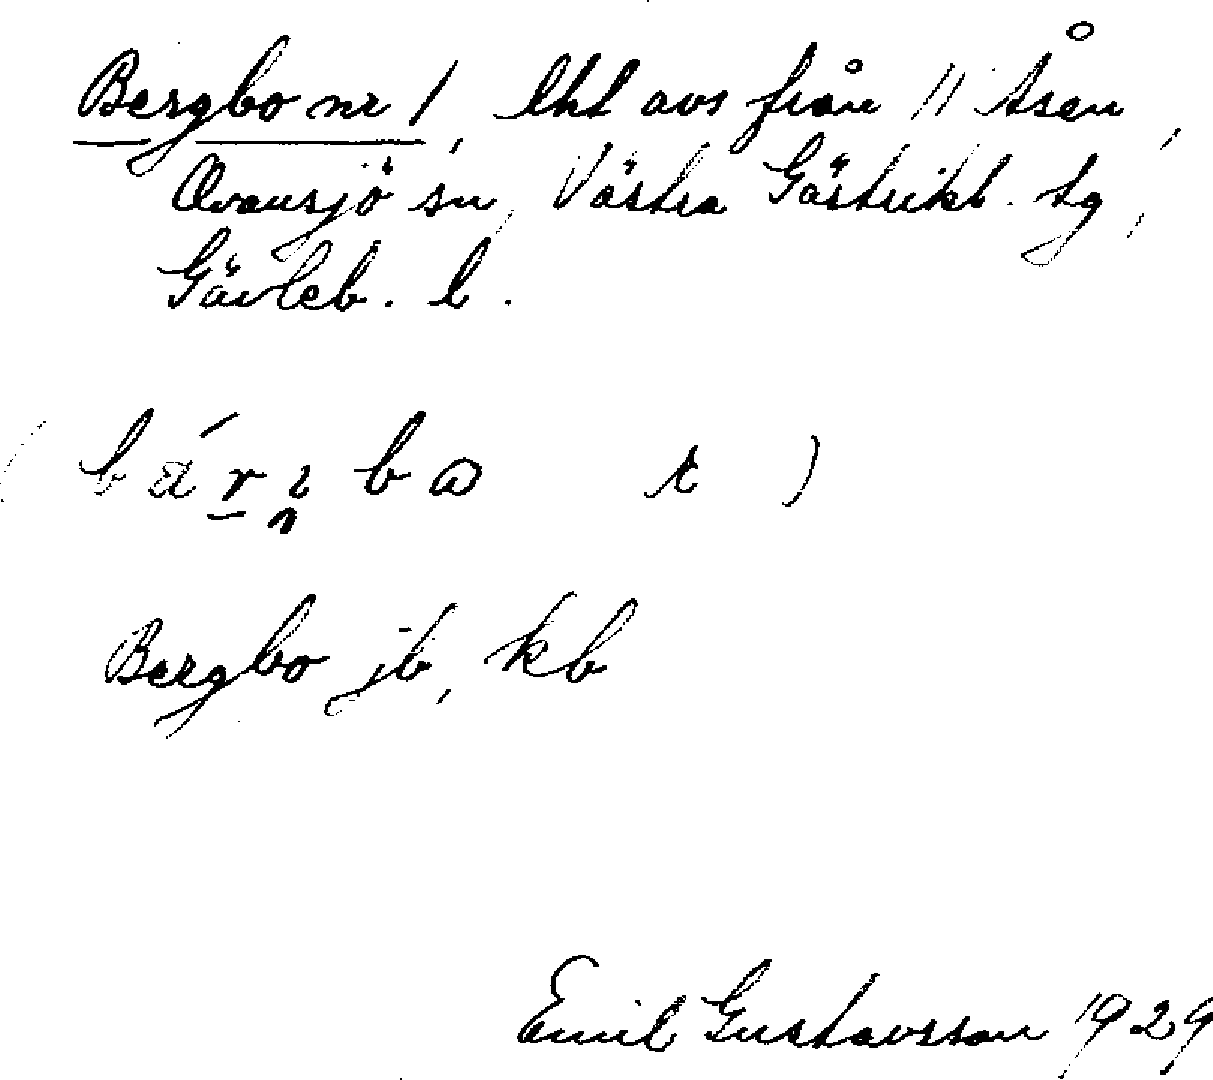 Bergbo nr 1, lht avs från 11 Åsen,
Ovansjö sn, Västra Gästrikl. tg,
Gävleb. l.
Bergbo jb, kb
Emil Gustavsson 1929